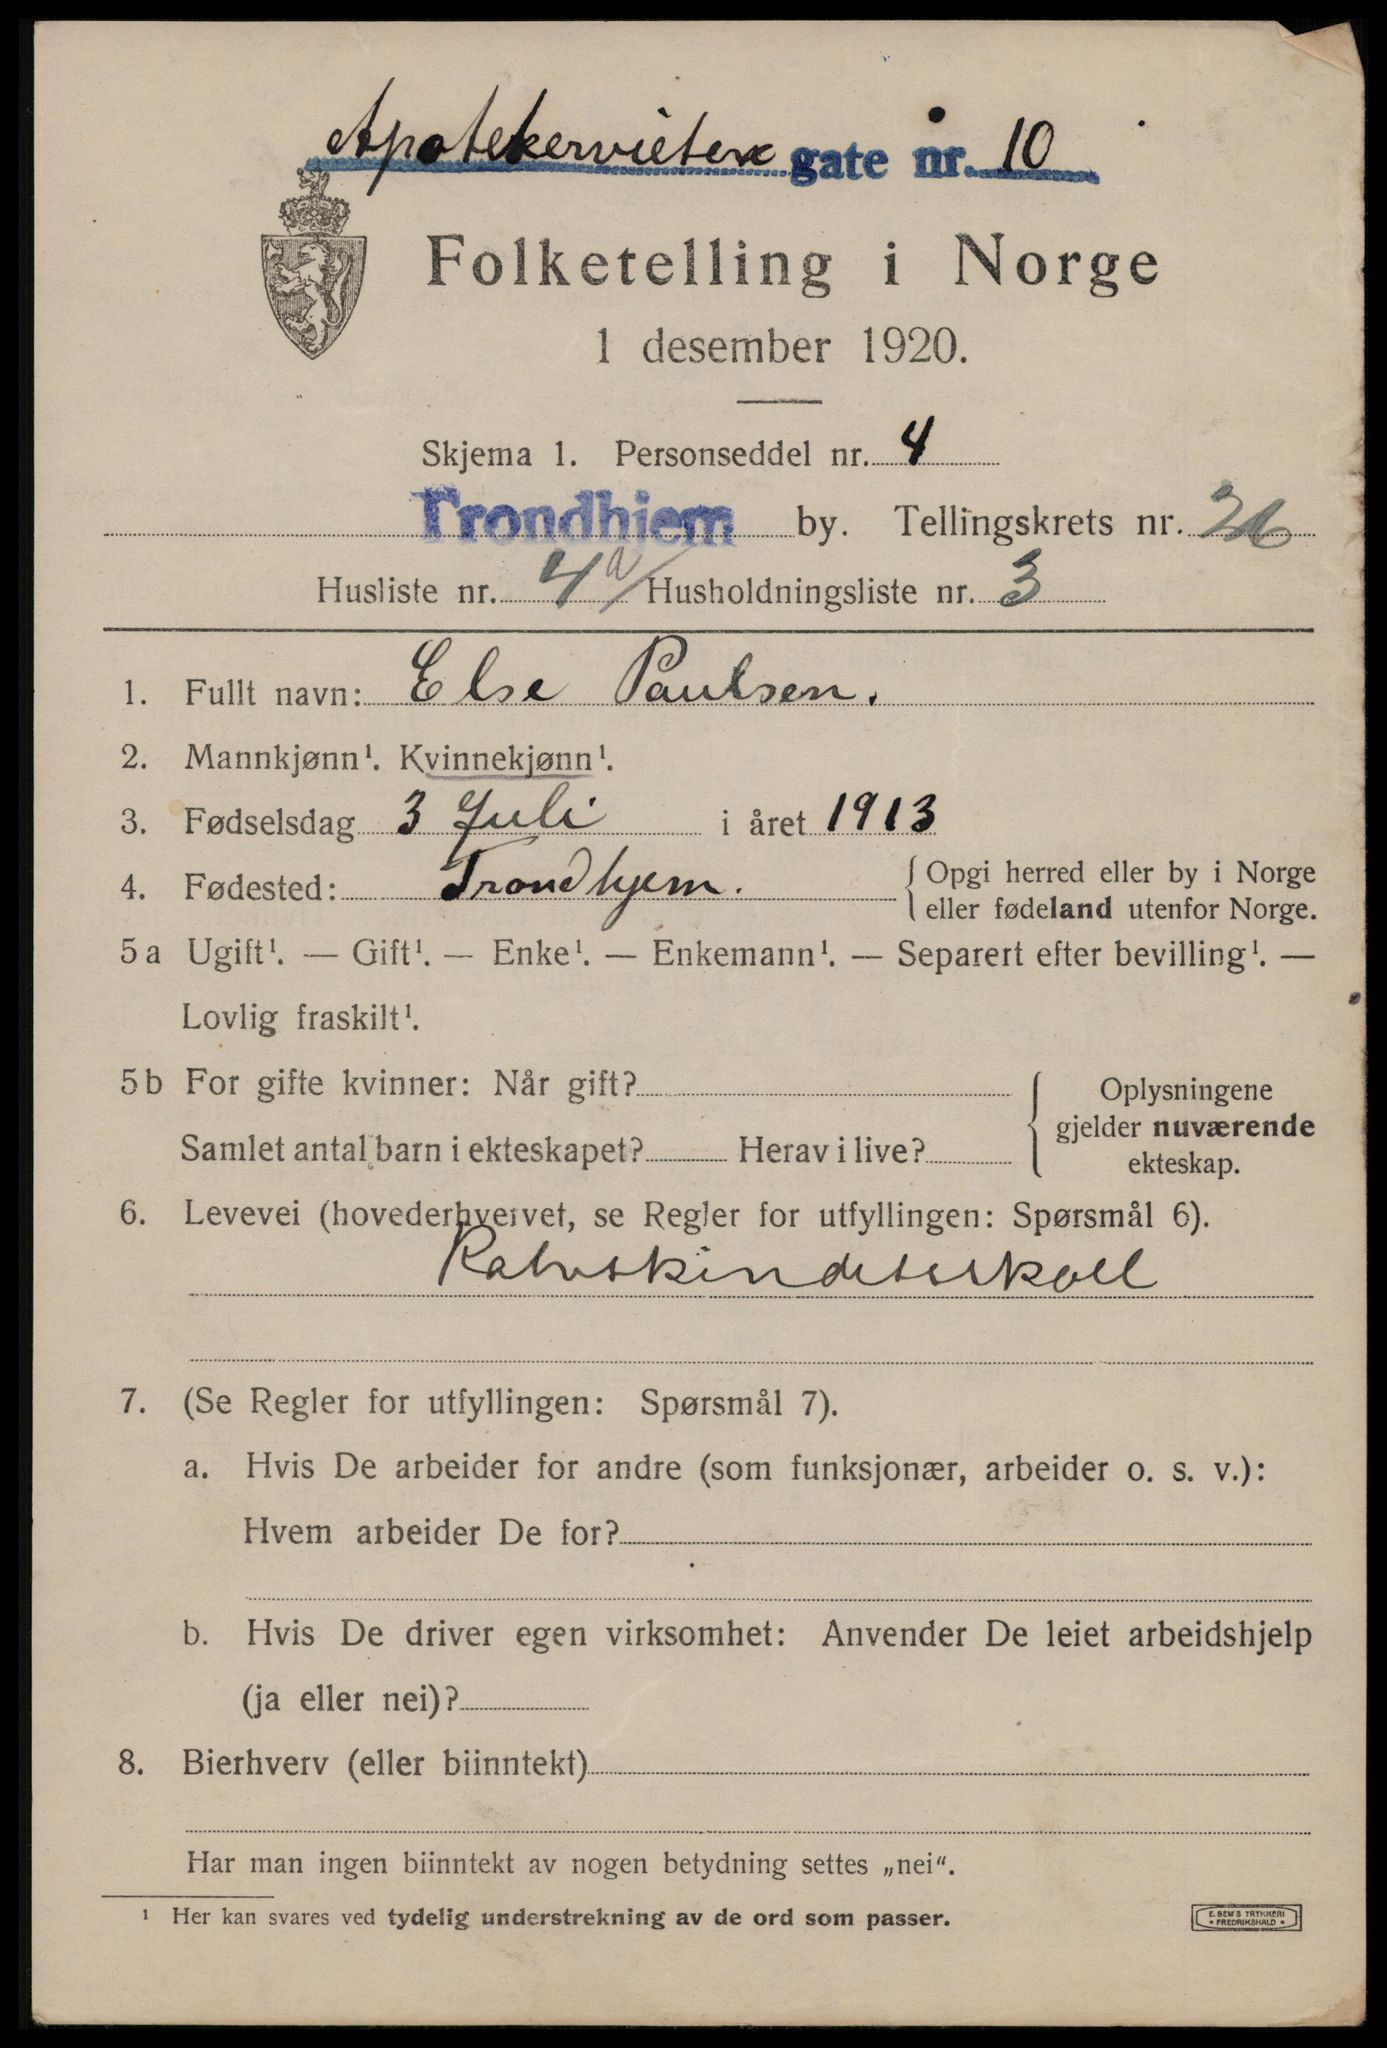 Apotekerveiten gate nr. 10
Folketelling i Norge
1 desember 1920.
Skjema 1. Personseddel nr. 4
Trondhjem by. Tellingskrets nr. 26
Husliste nr. 4a/ Husholdningsliste nr. 3
1. Fullt navn: Else Paulsen.
2. Mannkjønn¹. Kvinnekjønn¹.
3. Fødselsdag 3 Juli i året 1913
4. Fødested: Trondhjem. { Opgi herred eller by i Norge
eller fødeland utenfor Norge.
5 a Ugift¹. — Gift¹. — Enke¹. — Enkemann¹. — Separert efter bevilling¹. —
Lovlig fraskilt¹.
5 b For gifte kvinner: Når gift?
Samlet antal barn i ekteskapet? Herav i live?
{ Oplysningene
gjelder nuværende
ekteskap.
6. Levevei (hovederhvervet, se Regler for utfyllingen: Spørsmål 6).
Kalvskindetsskoll
7. (Se Regler for utfyllingen: Spørsmål 7).
a. Hvis De arbeider for andre (som funksjonær, arbeider o. s. v.):
Hvem arbeider De for?
b. Hvis De driver egen virksomhet: Anvender De leiet arbeidshjelp
(ja eller nei)?
8. Bierhverv (eller biinntekt)
Har man ingen biinntekt av nogen betydning settes „nei“.
¹ Her kan svares ved tydelig understrekning av de ord som passer.
E. SEM'S TRYKKERI
• FREDRIKSHALD •